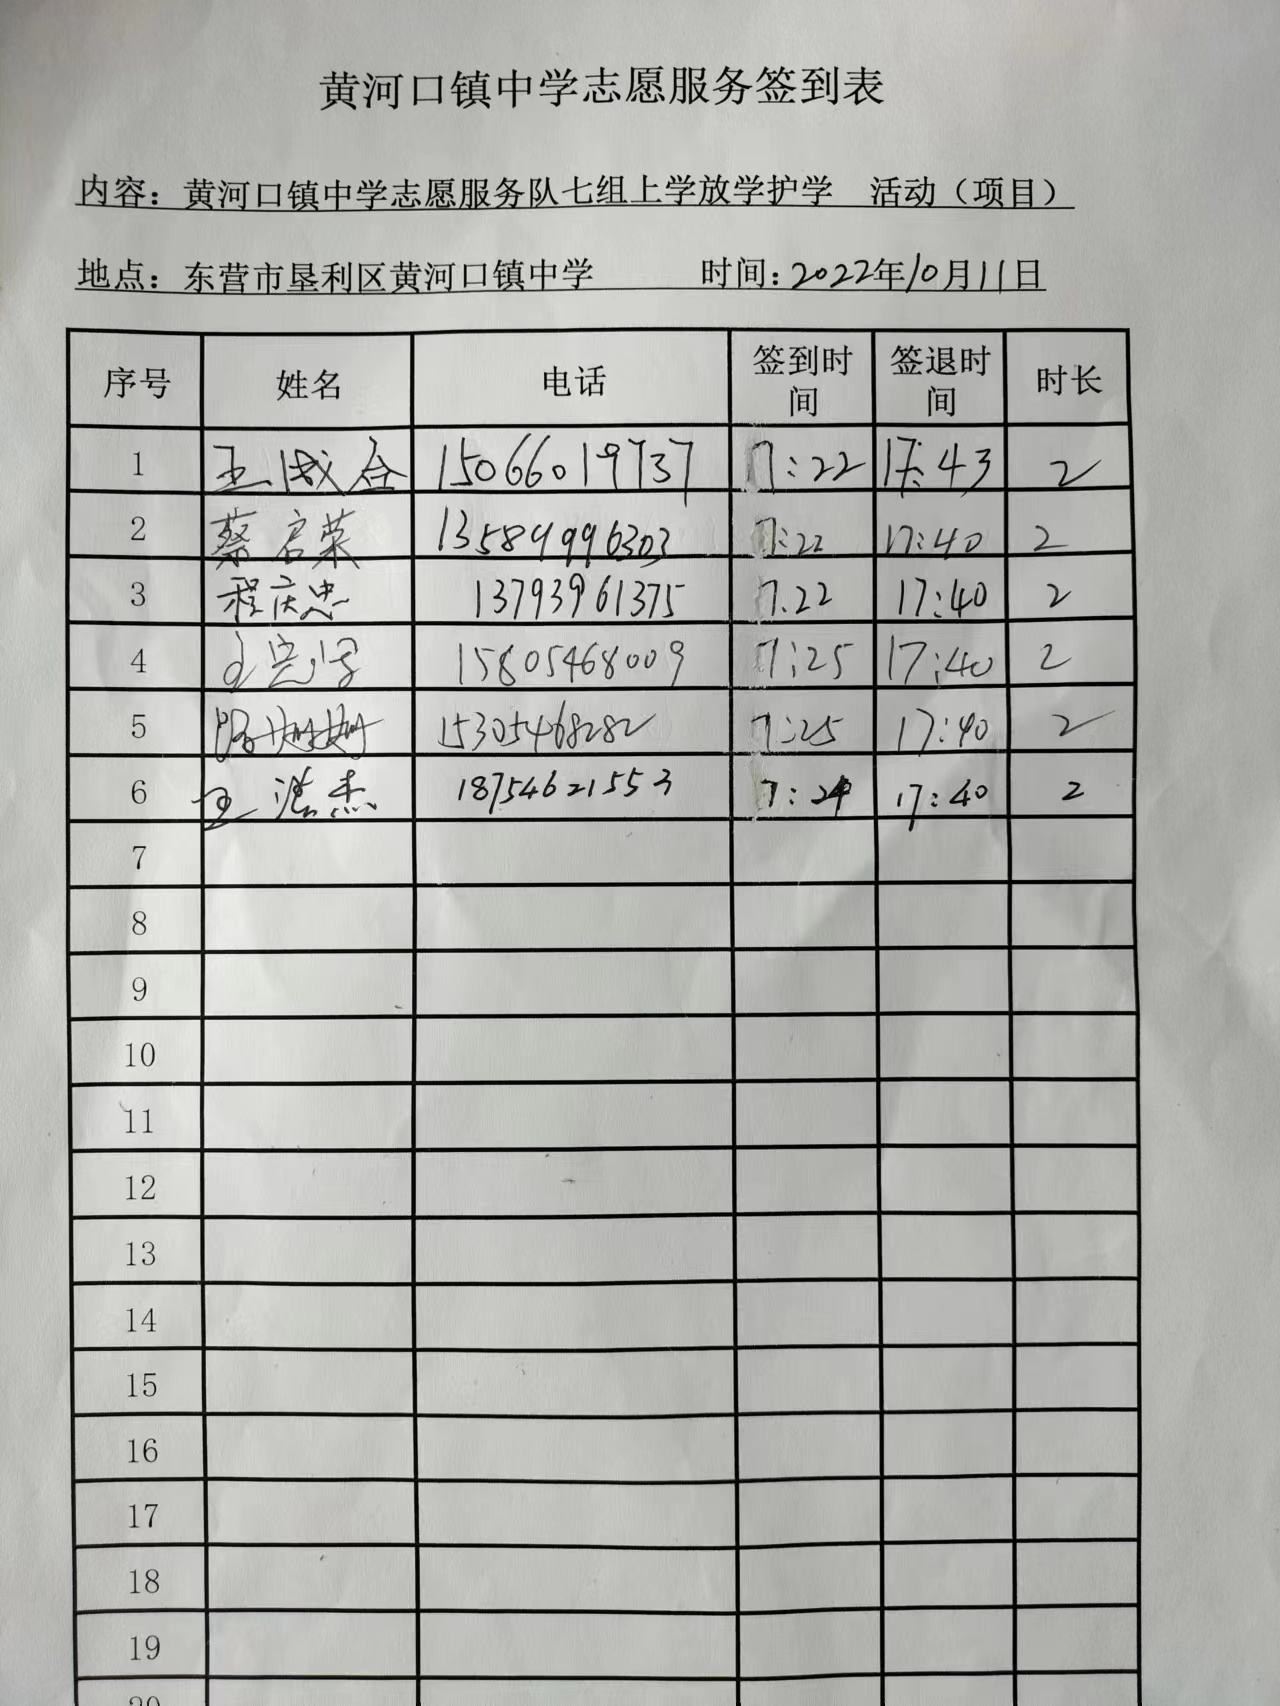 黄河口镇中学志愿服务签到表
内容：黄河口镇中学志愿服务队七组上学放学护学 活动（项目）
地点：东营市垦利区黄河口镇中学 时间：2022年10月11日
序号 姓名 电话 签到时间 签退时间 时长
1 王成合 15066019737 7:22 17:43 2
2 蔡启荣 13589996303 7:22 17:40 2
3 程庆忠 13793961375 7:22 17:40 2
4 15805468009 7:25 17:40 2
5 15305468282 7:25 17:40 2
6 王浩杰 18754621553 7:24 17:40 2
7
8
9
10
11
12
13
14
15
16
17
18
19
20